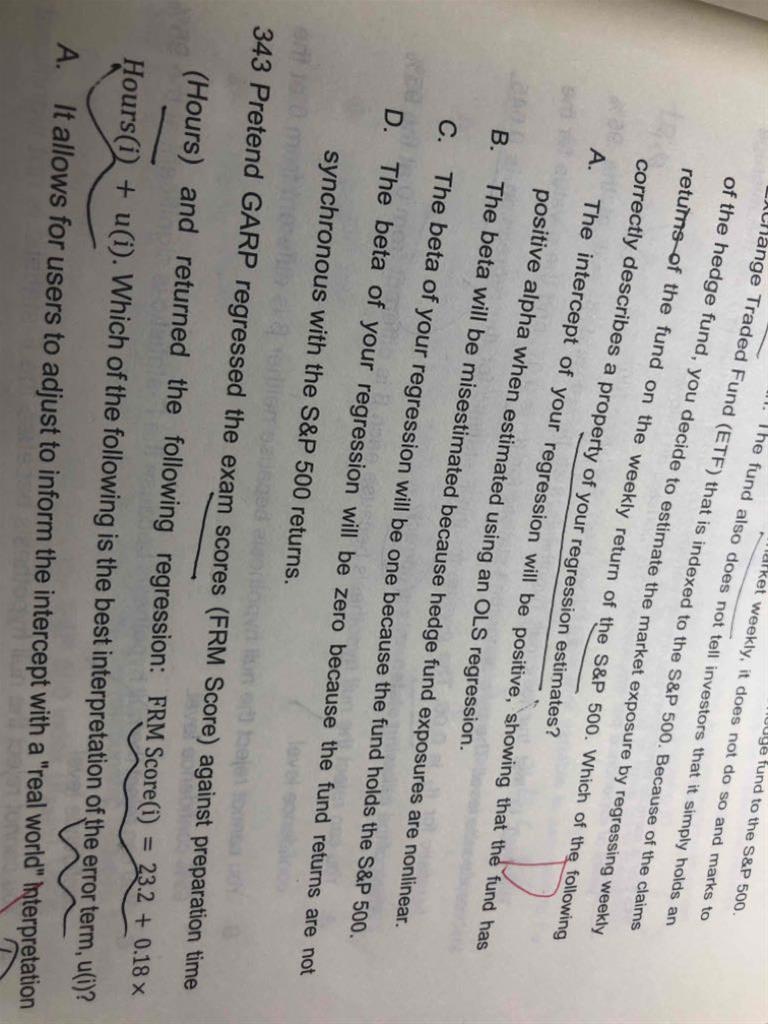 The fund also does not tell investors that it simply holds an
Exchange Traded Fund (ETF) that is indexed to the S&P 500. Because of the claims
of the hedge fund, you decide to estimate the market exposure by regressing weekly
returns of the fund on the weekly return of the S&P 500. Which of the following
correctly describes a property of your regression estimates?
A. The intercept of your regression will be positive, showing that the fund has
positive alpha when estimated using an OLS regression.
B. The beta will be misestimated because hedge fund exposures are nonlinear.
C. The beta of your regression will be one because the fund holds the S&P 500.
D. The beta of your regression will be zero because the fund returns are not
synchronous with the S&P 500 returns.
343 Pretend GARP regressed the exam scores (FRM Score) against preparation time
(Hours) and returned the following regression: FRM Score(i) = 23.2 + 0.18 ×
Hours(i) + u(i). Which of the following is the best interpretation of the error term, u(i)?
A. It allows for users to adjust to inform the intercept with a "real world" interpretation